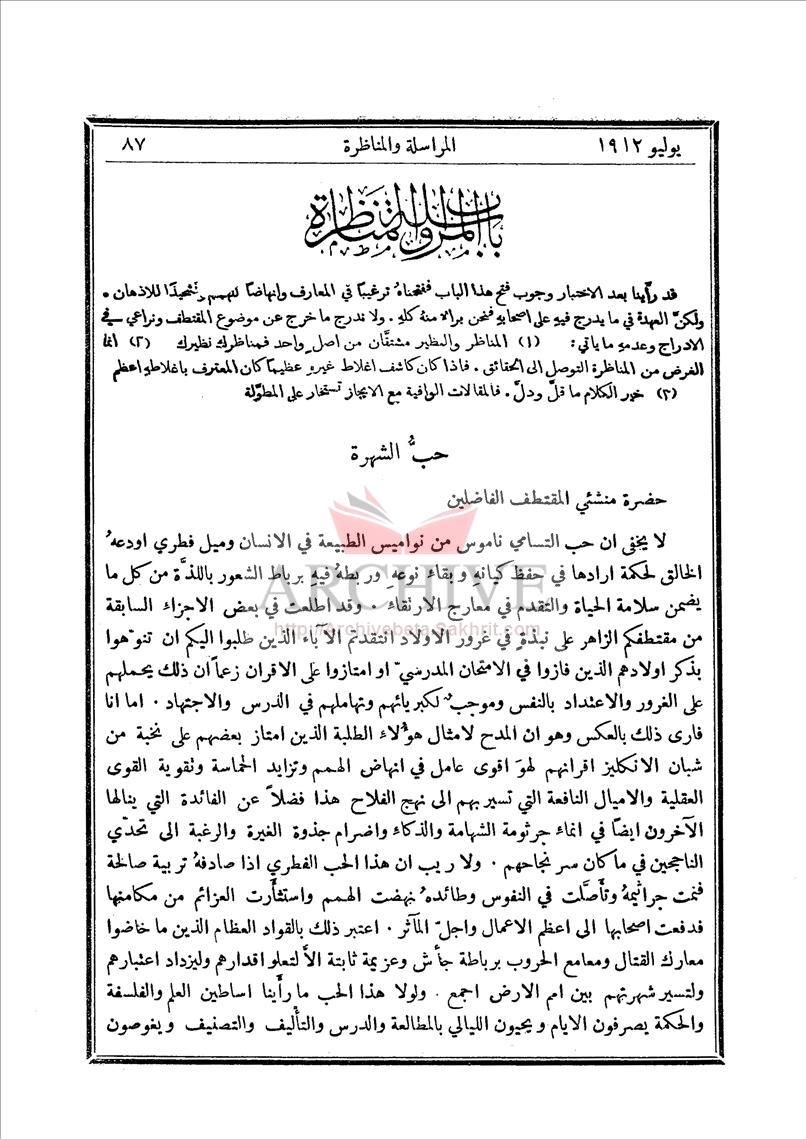 يوليو ١٩١٢ المراسلة والمناظرة ٨٧
باب المراسلة والمناظرة
قد رأينا بعد الاختبار وجوب فتح هذا الباب ففتحناهُ ترغيبًا في المعارف وإنهاضًا للهمم وتشحيذًا للاذهان .
ولكنَّ العهدة في ما يدرج فيهِ على اصحابهِ فنحن برالا منهُ كلهِ . ولا ندرج ما خرج عن موضوع المقتطف ونراعي في
الادراج وعدمهِ ما ياتي : (١) المناظر والنظير مشتقَّان من اصل واحد فمناظرك نظيرك (٢) انما
الغرض من المناظرة التوصل الى الحقائق . فاذا كان كاشف اغلاط غيرهِ عظيمًا كان المعترف باغلاطهِ اعظم
(٣) خير الكلام ما قلَّ ودلَّ . فالمقالات الوافية مع الايجاز تستخار على المطوَّلة
حبُّ الشهرة
حضرة منشئي المقتطف الفاضلين
لا يخفى ان حب التسامي ناموس من نواميس الطبيعة في الانسان وميل فطري اودعهُ
الخالق لحكمة ارادها في حفظ كيانهِ وبقاء نوعهِ وربطهُ فيهِ برباط الشعور باللذَّة من كل ما
يضمن سلامة الحياة والتقدم في معارج الارتقاء . وقد اطلعت في بعض الاجزاء السابقة
من مقتطفكم الزاهر على نبذةٍ في غرور الاولاد انتقدتم الآباء الذين طلبوا اليكم ان تنوّهوا
بذكر اولادهم الذين فازوا في الامتحان المدرسيّ او امتازوا على الاقران زعماً ان ذلك يحملهم
على الغرور والاعتداد بالنفس وموجبٌ لكبريائهم وتهاملهم في الدرس والاجتهاد . اما انا
فارى ذلك بالعكس وهو ان المدح لامثال هؤلاء الطلبة الذين امتاز بعضهم على نخبة من
شبان الانكليز اقرانهم لهوَ اقوى عامل في انهاض الهمم وتزايد الحماسة وتقوية القوى
العقلية والاميال النافعة التي تسير بهم الى نهج الفلاح هذا فضلاً عن الفائدة التي ينالها
الآخرون ايضاً في انماء جرثومة الشهامة والذكاء واضرام جذوة الغيرة والرغبة الى تحدّي
الناجحين في ما كان سر نجاحهم . ولا ريب ان هذا الحب الفطري اذا صادفهُ تربية صالحة
فنمت جراثيمهُ وتأصَّلت في النفوس وطائدهُ نهضت الهمم واستثأرت العزائم من مكامنها
فدفعت اصحابها الى اعظم الاعمال واجلّ المآثر . اعتبر ذلك بالقواد العظام الذين ما خاضوا
معارك القتال ومعامع الحروب برباطة جأش وعزيمة ثابتة الاَّ لتعلو اقدارهم وليزداد اعتبارهم
ولتسير شهرتهم بين امم الارض اجمع . ولولا هذا الحب ما رأينا اساطين العلم والفلسفة
والحكمة يصرفون الايام ويحيون الليالي بالمطالعة والدرس والتأليف والتصنيف ويغوصون
ARCHIVE
http://Archivebeta.Sakhrit.com